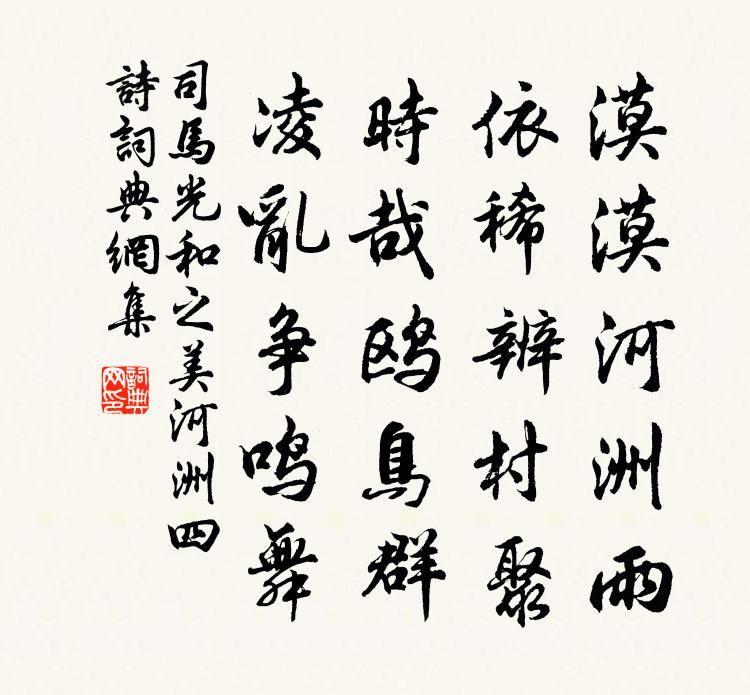 漠漠河洲雨
依稀辨村聚
時哉鸥鳥群
凌亂争鸣舞
司馬光和之美河洲四
詩詞典網集
詞典网印